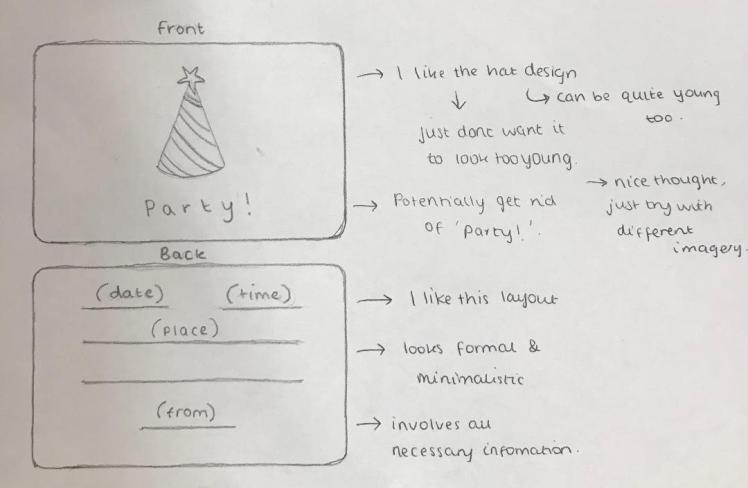 Front
Party!
→ I like the hat design
↓
just dont want it
to look too young.
↳ can be quite young
too.
→ Potentially get rid
of 'Party!'.
→ nice thought,
just try with
different
imagery.
Back
(date) (time)
(place)
(from)
→ I like this layout
→ looks formal &
minimalistic
→ involves all
necessary infomation.